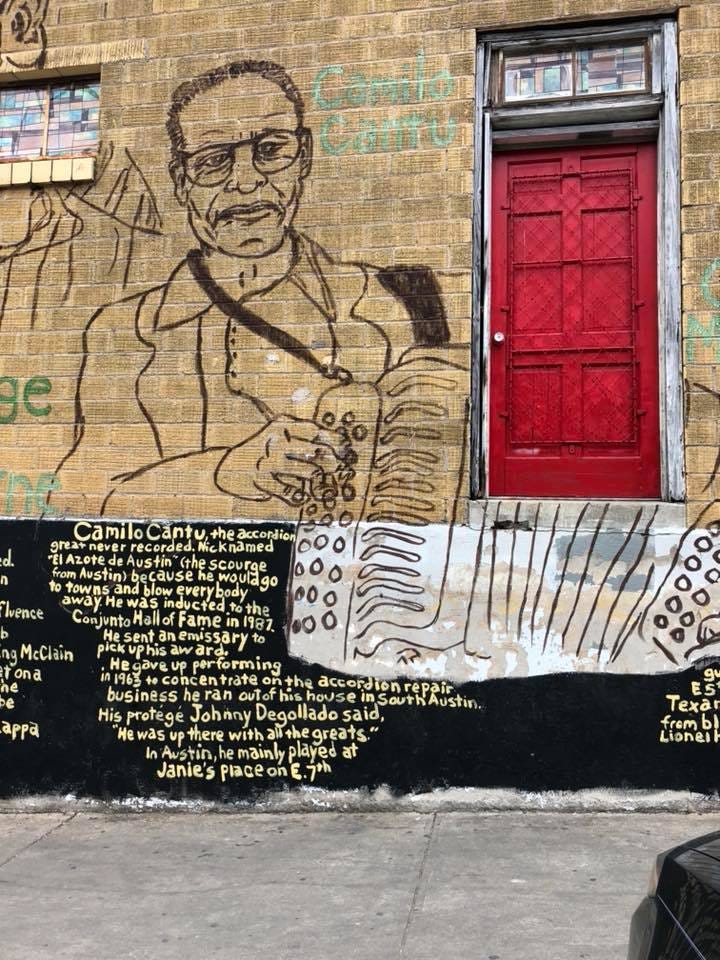 Camilo
Cantu
ge
ne
Camilo Cantu, the accordion
great never recorded. Nicknamed
"El Azote de Austin" (the scourge
from Austin) because he would go
to towns and blow everybody
away. He was inducted to the
Conjunto Hall of Fame in 1987.
He sent an emissary to
pick up his award.
He gave up performing
in 1963 to concentrate on the accordion repair
business he ran out of his house in South Austin.
His protégé Johnny Degollado said,
"He was up there with all the greats."
In Austin, he mainly played at
Janie's place on E. 7th
ed.
n
fluence
b
ng McClain
at on a
ne
be
appa
gu
Es
Texan
from bl
Lionel H